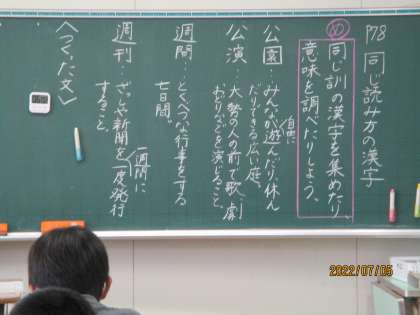 P78 同じ読み方の漢字
め
同じ訓の漢字を集めたり、
意味を調べたりしよう。
公園…みんなが自由に遊んだり、休ん
だりできる広い庭。
公演…大勢の人の前で歌、劇
おどりなどを演じること。
週間…とくべつな行事をする
七日間。
週刊…ざっしや新聞を一週間に一度発行
すること。
〈つくった文〉
2022/07/05